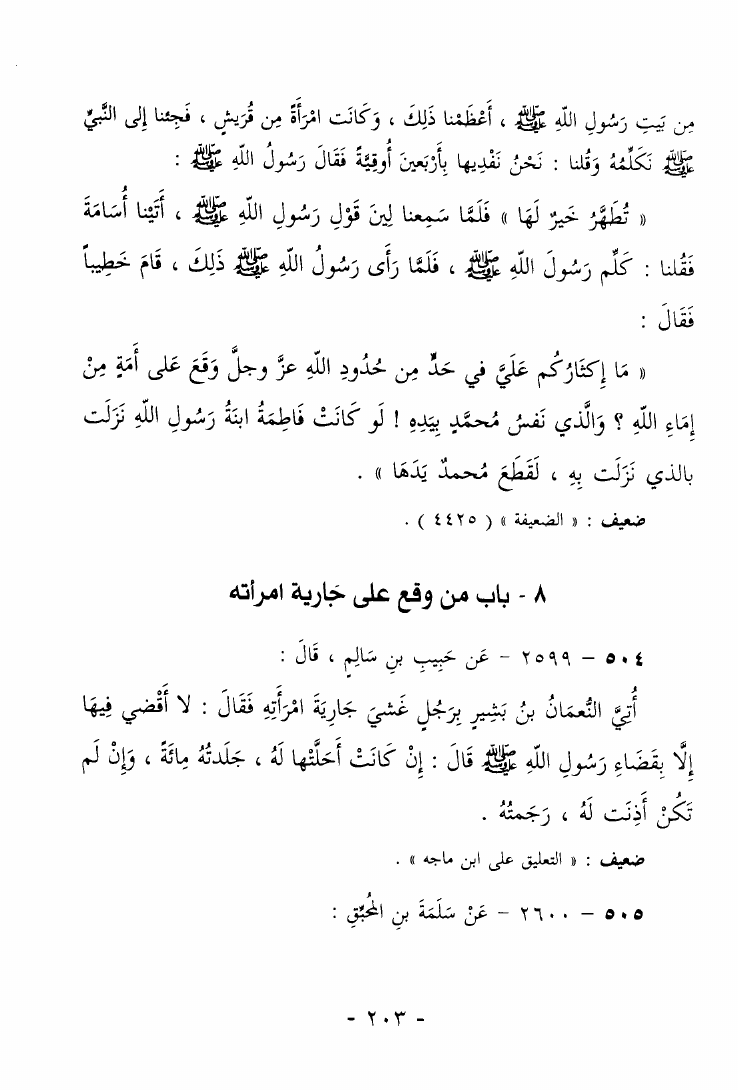 مِن بَيتِ رَسُولِ اللّهِ ﷺ ، أَعْظَمْنا ذَلِكَ ، وَكَانَت امْرَأَةً مِن قُرَيشٍ ، فَجِئنا إلى النَّبيِّ
ﷺ نَكَلِّمُهُ وَقُلنا : نَحْنُ نَفْدِيها بِأَرْبَعينَ أُوقِيَّةً فَقَالَ رَسُولُ اللّهِ ﷺ :
« تُطَهَّرُ خَيرٌ لَهَا » فَلَمَّا سَمِعنا لِينَ قَوْلِ رَسُولِ اللّهِ ﷺ ، أَتَيْنا أُسَامَةَ
فَقُلنا : كَلِّم رَسُولَ اللّهِ ﷺ ، فَلَمَّا رَأَى رَسُولُ اللّهِ ﷺ ذَلِكَ ، قَامَ خَطِيباً
فَقَالَ :
« مَا إِكثَارُكُم عَلَيَّ في حَدٍّ مِن حُدُودِ اللّهِ عزَّ وجلَّ وَقَعَ عَلى أَمَةٍ مِنْ
إِمَاءِ اللّهِ ؟ وَالَّذي نَفسُ مُحمَّدٍ بِيَدِهِ ! لَو كَانَتْ فَاطِمَةُ ابنَةُ رَسُولِ اللّهِ نَزَلَت
بالذي نَزَلَت بِهِ ، لَقَطَعَ مُحمدٌ يَدَهَا » .
ضعيف : « الضعيفة » ( ٤٤٢٥ ) .
٨ - باب من وقع على جَارية امرأته
٥٠٤ – ٢٥٩٩ – عَن حَبِيبِ بنِ سَالِمٍ ، قَالَ :
أُتِيَّ النُّعمَانُ بنُ بَشِيرٍ بِرَجُلٍ غَشيَ جَارِيَةَ امْرَأَتِهِ فَقَالَ : لا أَقْضي فِيهَا
إلَّا بِقَضَاءِ رَسُولِ اللّهِ ﷺ قَالَ : إنْ كَانَتْ أَحَلَّتْها لَهُ ، جَلَدتُهُ مِائَةً ، وَإِنْ لَم
تَكُنْ أَذِنَت لَهُ ، رَجَمتُهُ .
ضعيف : « التعليق على ابن ماجه » .
٥٠٥ – ٢٦٠٠ – عَنْ سَلَمَةَ بنِ المُحَبِّقِ :
- ٢٠٣ -